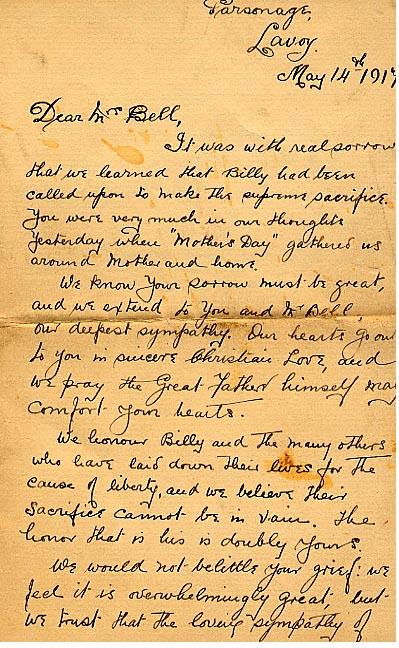 Parsonage,
Lavoy.
May 14th 1917
Dear Mrs Bell,
It was with real sorrow
that we learned that Billy had been
called upon to make the supreme sacrifice.
You were very much in our thoughts
yesterday when "Mother's Day" gathered us
around Mother and home.
We know your sorrow must be great,
and we extend to you and Mr Bell,
our deepest sympathy. Our hearts go out
to you in sincere Christian Love, and
we pray the Great Father himself may
comfort your hearts.
We honour Billy and the many others
who have laid down their lives for the
cause of liberty, and we believe their
sacrifice cannot be in vain. The
honor that is his is doubly yours.
We would not belittle your grief: we
feel it is overwhelmingly great, but
we trust that the loving sympathy of